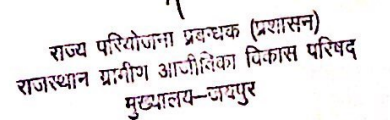 राज्य परियोजना प्रबन्धक (प्रशासन)
राजस्थान ग्रामीण आजीविका विकास परिषद
मुख्यालय–जयपुर